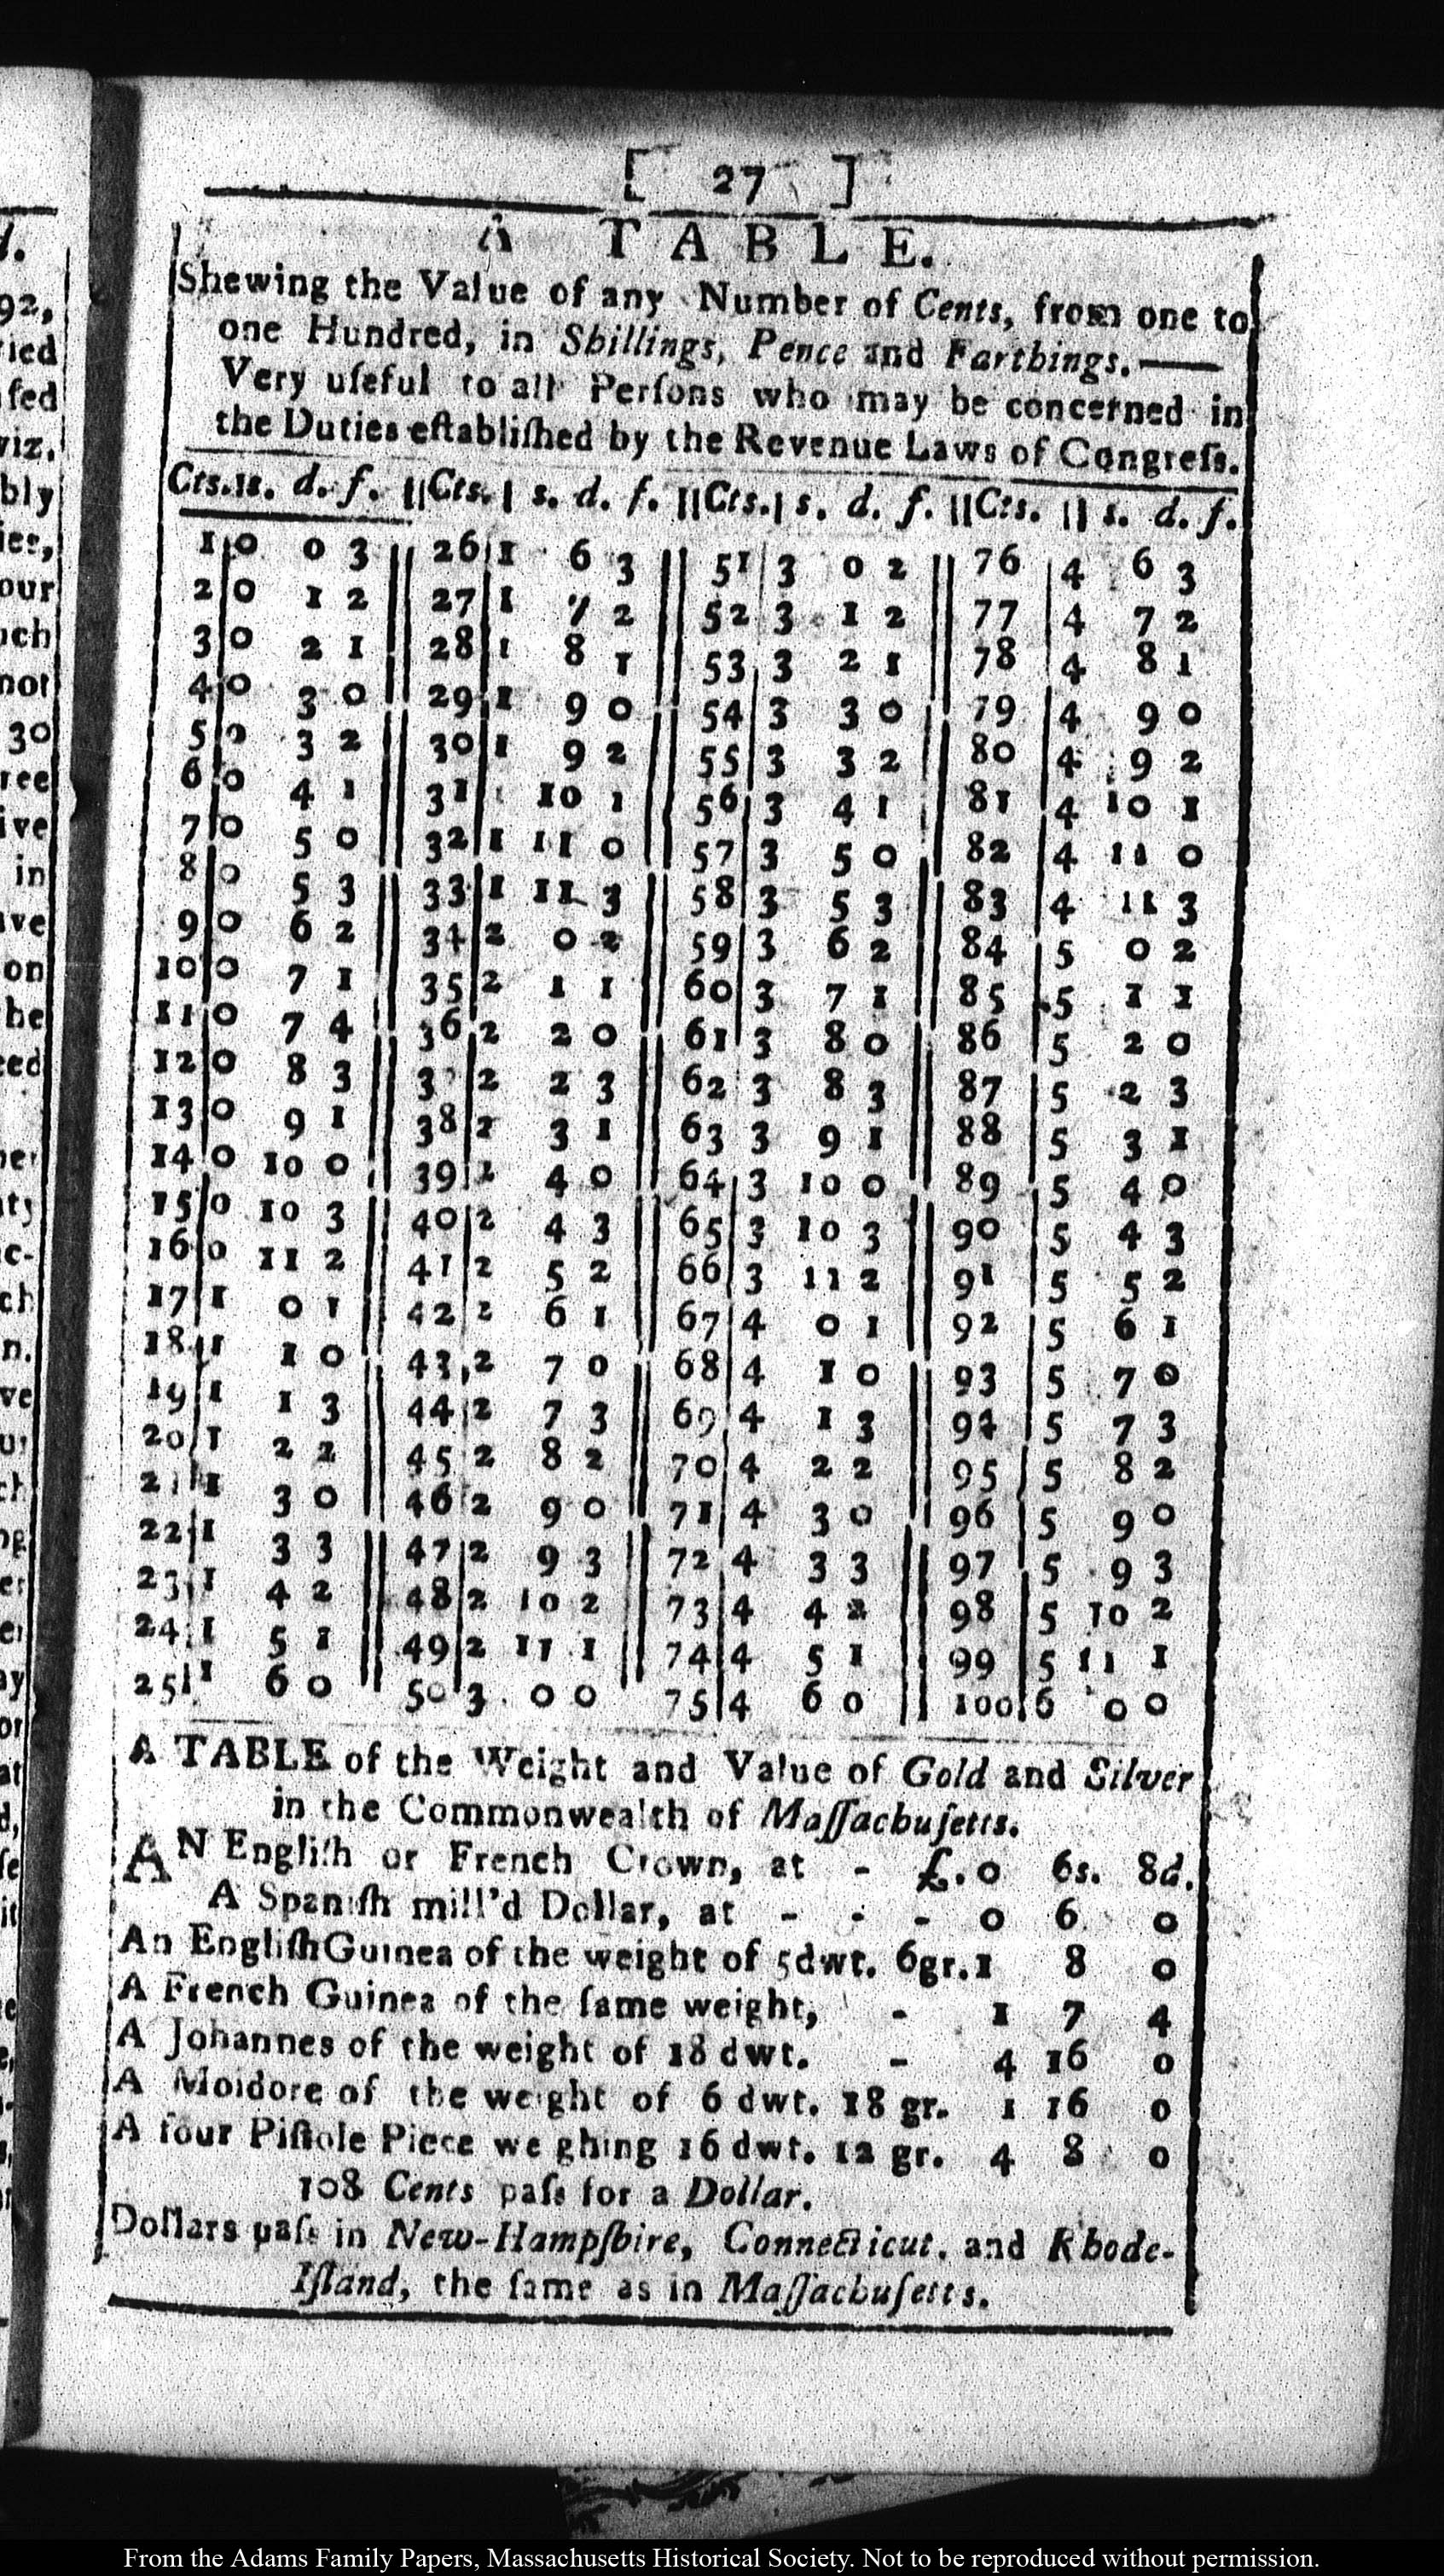 [ 27 ]
A TABLE.
Shewing the Value of any Number of Cents, from one to
one Hundred, in Shillings, Pence and Farthings.——
Very uſeful to all Perſons who may be concerned in
the Duties eſtabliſhed by the Revenue Laws of Congreſs.
Cts.|s. d. f. ||Cts.| s. d. f. ||Cts.| s. d. f. ||Cts. || s. d. f.
1|0 0 3 || 26|1 6 3 || 51|3 0 2 || 76|4 6 3
2|0 1 2 || 27|1 7 2 || 52|3 1 2 || 77|4 7 2
3|0 2 1 || 28|1 8 1 || 53|3 2 1 || 78|4 8 1
4|0 3 0 || 29|1 9 0 || 54|3 3 0 || 79|4 9 0
5|0 3 2 || 30|1 9 2 || 55|3 3 2 || 80|4 9 2
6|0 4 1 || 31|1 10 1 || 56|3 4 1 || 81|4 10 1
7|0 5 0 || 32|1 11 0 || 57|3 5 0 || 82|4 11 0
8|0 5 3 || 33|1 11 3 || 58|3 5 3 || 83|4 11 3
9|0 6 2 || 34|2 0 2 || 59|3 6 2 || 84|5 0 2
10|0 7 1 || 35|2 1 1 || 60|3 7 1 || 85|5 1 1
11|0 7 4 || 36|2 2 0 || 61|3 8 0 || 86|5 2 0
12|0 8 3 || 3 |2 2 3 || 62|3 8 3 || 87|5 2 3
13|0 9 1 || 38|2 3 1 || 63|3 9 1 || 88|5 3 1
14|0 10 0 || 39|2 4 0 || 64|3 10 0 || 89|5 4 0
15|0 10 3 || 40|2 4 3 || 65|3 10 3 || 90|5 4 3
16|0 11 2 || 41|2 5 2 || 66|3 11 2 || 91|5 5 2
17|1 0 1 || 42|2 6 1 || 67|4 0 1 || 92|5 6 1
18|1 1 0 || 43|2 7 0 || 68|4 1 0 || 93|5 7 0
19|1 1 3 || 44|2 7 3 || 69|4 1 3 || 94|5 7 3
20|1 2 2 || 45|2 8 2 || 70|4 2 2 || 95|5 8 2
21|1 3 0 || 46|2 9 0 || 71|4 3 0 || 96|5 9 0
22|1 3 3 || 47|2 9 3 || 72|4 3 3 || 97|5 9 3
23|1 4 2 || 48|2 10 2 || 73|4 4 2 || 98|5 10 2
24|1 5 1 || 49|2 11 1 || 74|4 5 1 || 99|5 11 1
25|1 6 0 || 50|3 0 0 || 75|4 6 0 || 100|6 0 0
A TABLE of the Weight and Value of Gold and Silver
in the Commonwealth of Maſſachuſetts.
AN Engliſh or French Crown, at - £.0 6s. 8d.
A Spaniſh mill'd Dollar, at - - - 0 6 0
An Engliſh Guinea of the weight of 5dwt. 6gr. 1 8 0
A French Guinea of the ſame weight, - 1 7 4
A Johannes of the weight of 18 dwt. - 4 16 0
A Moidore of the weight of 6 dwt. 18 gr. 1 16 0
A four Piſtole Piece we ghing 16 dwt. 12 gr. 4 8 0
108 Cents paſs for a Dollar.
Dollars paſs in New-Hampſhire, Connecticut, and Rhode-
Iſland, the ſame as in Maſſachuſetts.
From the Adams Family Papers, Massachusetts Historical Society. Not to be reproduced without permission.